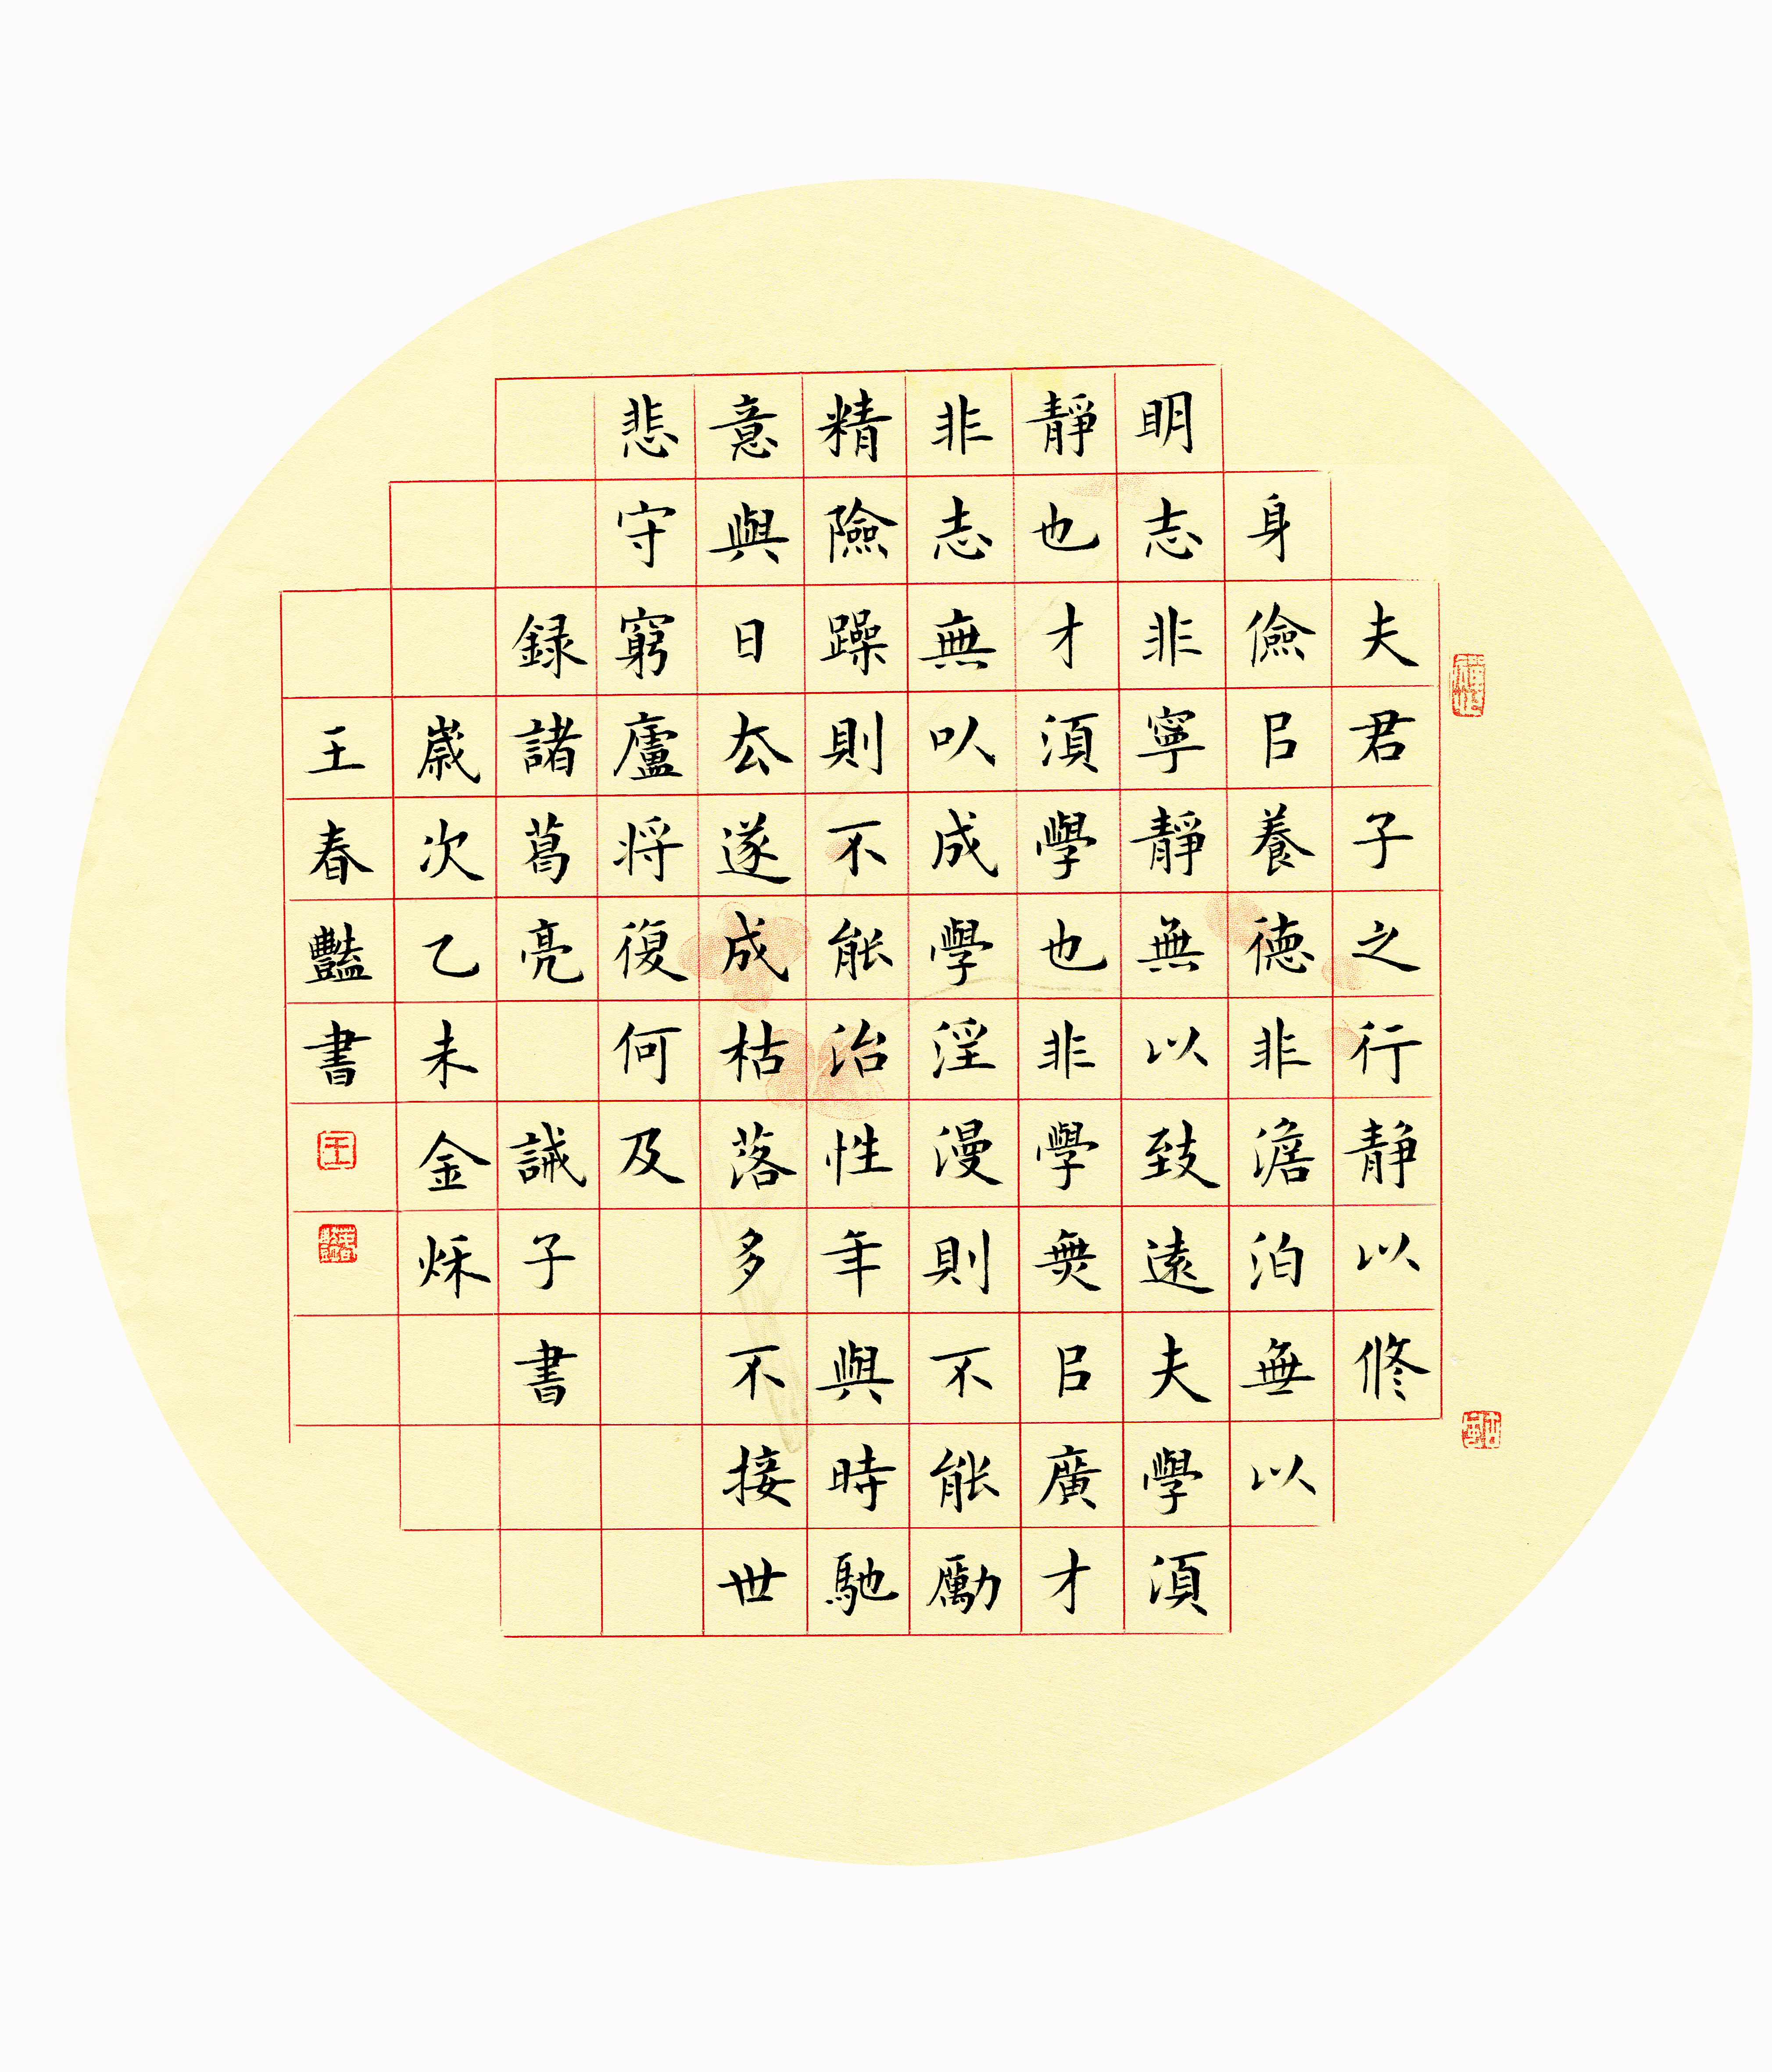 夫君子之行靜以修
身儉㠯養德非澹泊無以
明志非寧靜無以致遠夫學須
靜也才須學也非學無㠯廣才
非志無以成學淫漫則不能勵
精險躁則不能治性年與時馳
意與日去遂成枯落多不接世
悲守窮廬将復何及
録諸葛亮 誡子書
歲次乙未金秌
王春豔書
王